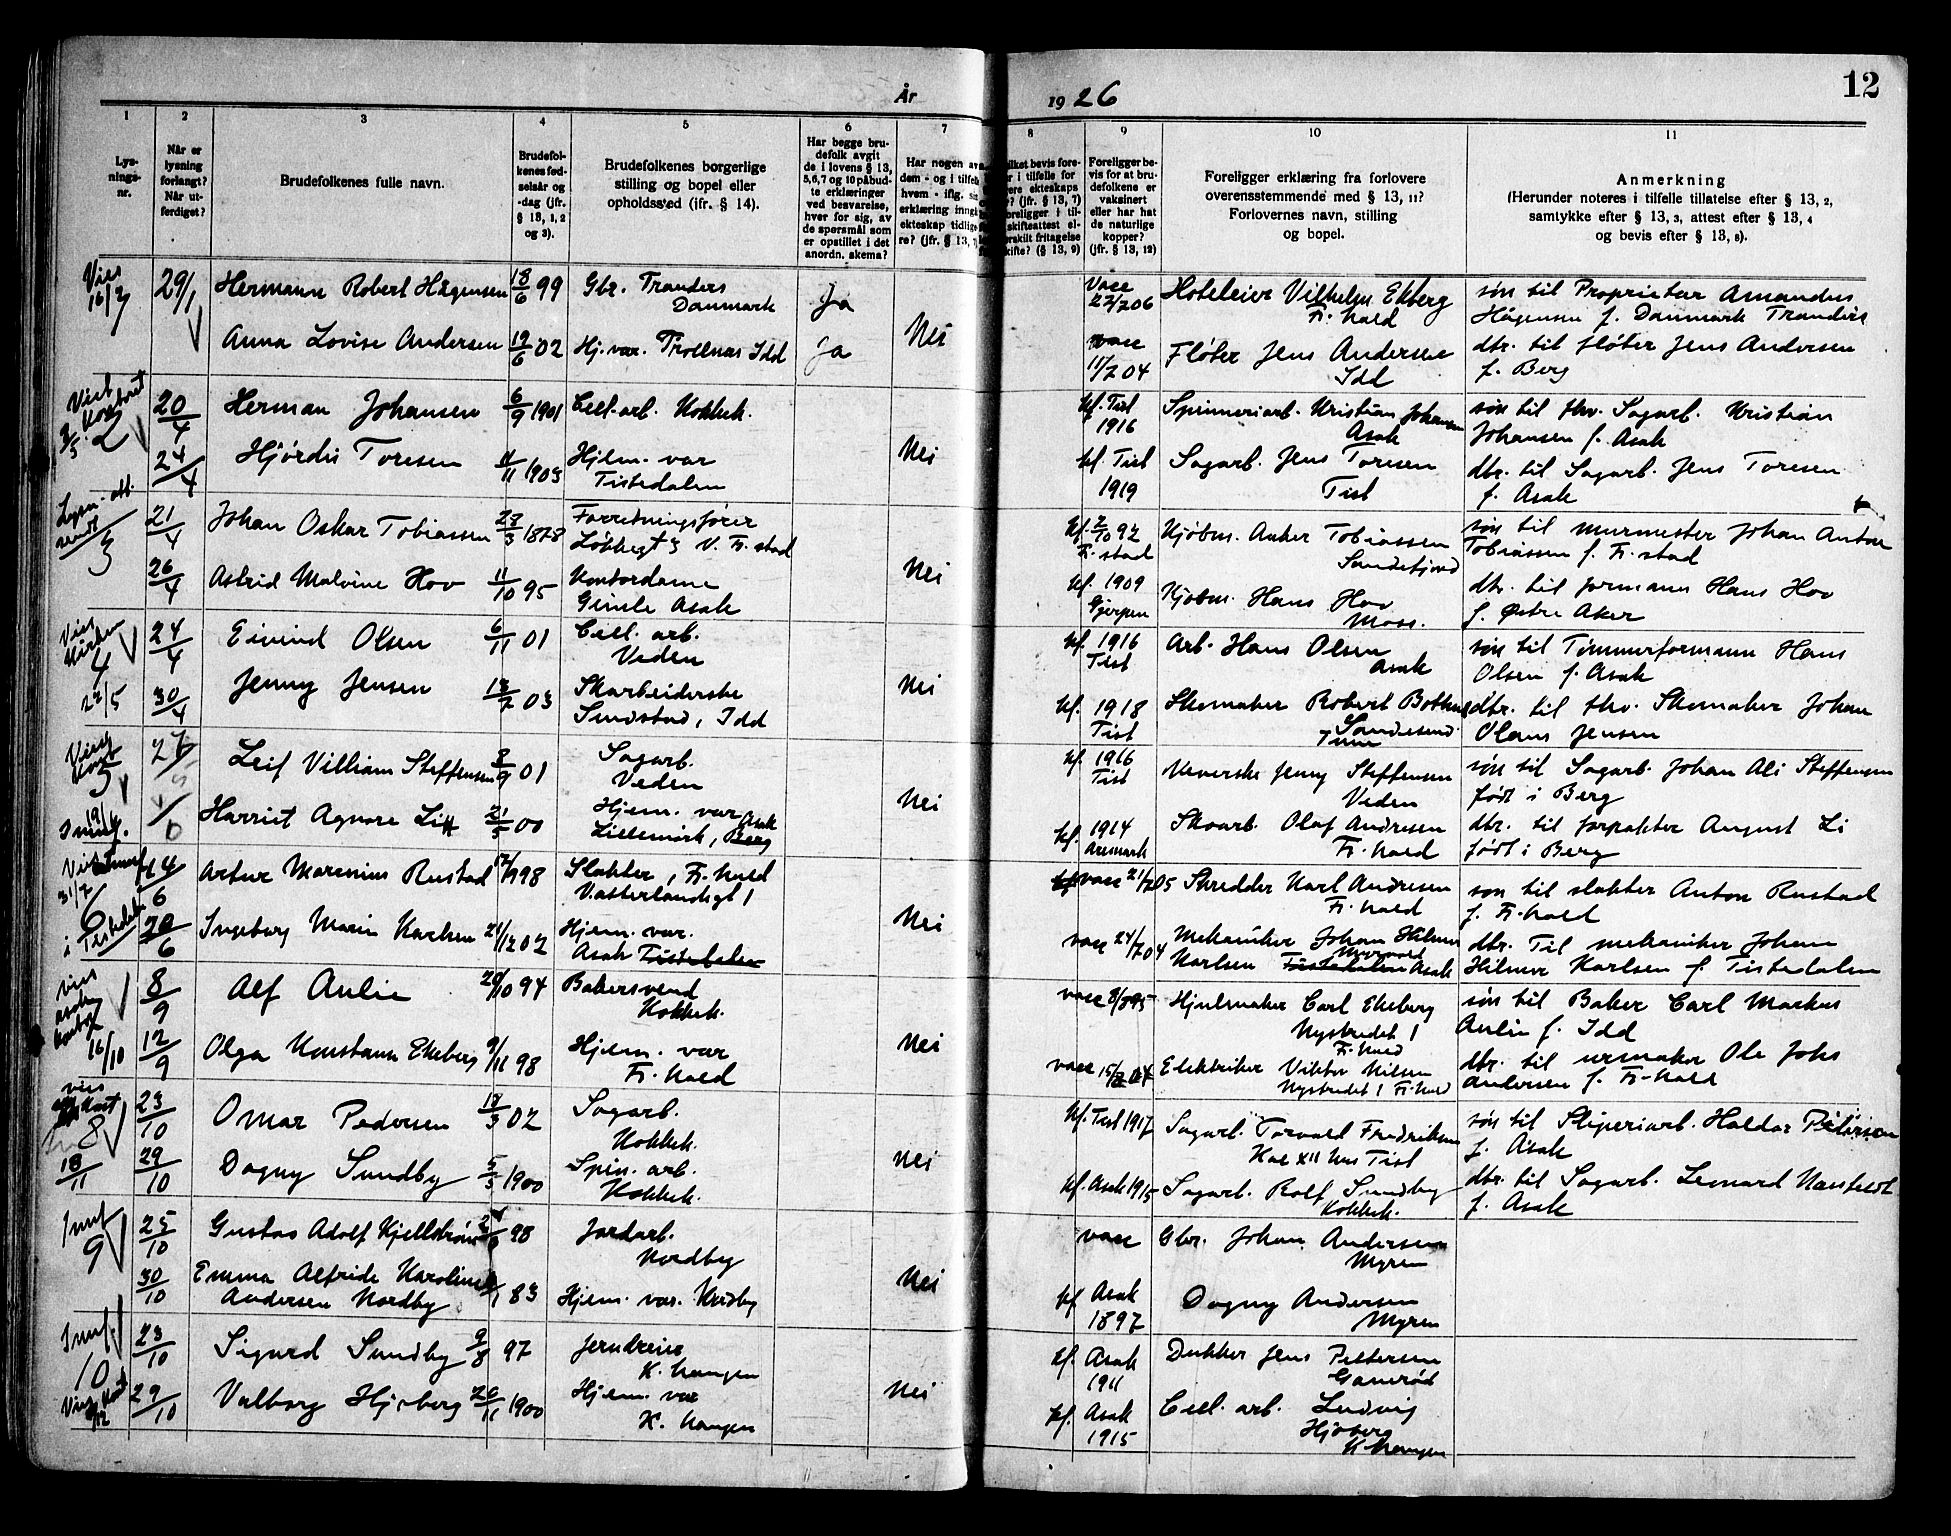 12
År 1926
1
2
3
4
5
6
7
8
9
10
11
Lys-
nings-
nr.
Når er
lysning
forlangt?
Når ut-
ferdiget?
Brudefolkenes fulle navn.
Brudefol-
kenes fød-
selsår og
-dag (jfr.
§ 13, 1, 2
og 3).
Brudefolkenes borgerlige
stilling og bopel eller
opholdssted (ifr. § 14).
Har begge bru-
defolk avgit
de i lovens § 13,
5,6,7 og 10 påbud-
te erklæringer
ved besvarelse,
hver for sig, av
de spørsmål som
er opstillet i det
anordn. skema?
Har nogen av
dem - og i tilfelle
hvem - iflg.
erklæring inngått
ekteskap tidlige-
re? (jfr. § 13,
ilket bevis fore-
r i tilfelle for
ere ekteskaps
? (jfr. § 13, 7)
oreligger i til-
skifteattest el-
erskilt fritagelse
kifte? (§ 13, 9)
Foreligger be-
vis for at bru-
defolkene er
vaksinert
eller har hat
de naturlige
kopper?
(jfr. § 13, 12)
Foreligger erklæring fra forlovere
overensstemmende med § 13, 11?
Forlovernes navn, stilling
og bopel.
Anmerkning
(Herunder noteres i tilfelle tillatelse efter § 13, 2,
samtykke efter § 13, 3, attest efter § 13, 4
og bevis efter § 13, 8).
29/1 Hermann Robert Hägensen 18/6 99 Gbr. Tranders
Danmark Ja
Vacc Hoteleier Vilhelm Ekberg
Fr.hald
søn til Proprietær Amandus
Hägensen f. Danmark Tranders
Anna Lovise Andersen 19/6 02 Hj. var. Trollnes Idd Ja Nei
vacc
11/7 04 Fløter Jens Andersen
Idd
dtr. til fløter Jens Andersen
f. Berg
2 20/4 Herman Johansen 6/9 1901 Cell. arb. Kokkek.
kf. Tist
1916 Spinneriarb. Kristian Johansen
Asak
søn til fhv. Sagarb. Kristian
Johansen f. Asak
24/4 Hjørdis Toresen 1903 Hjem. var
Tistedalen Nei
kf. Tist
1919 Sagarb. Jens Toresen
Tist
dtr. til Sagarb. Jens Toresen
f. Asak
3 21/4 Johan Oskar Tobiassen 1878 Forretningsfører
V. Fr. stad
Fr. stad Kjøbm. Anker Tobiassen
Sandefjord
søn til murmester Johan Anton
Tobiassen f. Fr. stad
26/4 Astrid Malvine Hov 11/10 95 Kontordame
Gimle Asak Nei
kf. 1909
Gjerpen Kjøbm. Hans Hov
Moss.
dtr. til formann Hans Hov
f. Østre Aker
4 24/4 Eivind Olsen 6/11 01 Cell. arb.
Veden
kf. 1916
Tist Arb. Hans Olsen
Asak
søn til Tømmerformann Hans
Olsen f. Asak
30/4 Jenny Jensen 03 Skoarbeiderske
Sundstad, Idd Nei
kf. 1918
Tist Skomaker Robert
dtr. til fhv. Skomaker Johan
Olaus Jensen
5 Leif Villiam Steffensen 8/9 01 Sagarb.
Veden
kf. 1916
Tist Veverske Jenny Steffensen
Veden
søn til Sagarb. Johan Ali Steffensen
født i Berg
Harriet Agnore Li 21/5 00 Hjem. var Asak
Berg Nei
kf. 1914
Aremark Skoarb. Olaf Andresen
Fr. hald
dtr. til forpakter August Li
født i Berg
6 14/6 Artur Marinius Rustad 98 Slakter, Fr. hald
Vasterlandsgt 1
vacc Skredder Karl Andresen
Fr. hald
søn til slakter Anton Rustad
f. Fr. hald
20/6 Ingeborg Marie Karlsen 21/12 02 Hjem. var.
Asak Tistedalen Nei
vacc Mekaniker Johan Hilmer
Karlsen Tistedalen Asak
dtr. Til mekaniker Johan
Hilmer Karlsen f. Tistedalen
8/9 Alf Aulie 94 Bakersvend
Kokkek.
vacc Hjulmaker Carl Ekeberg
Fr. hald
søn til Baker Carl Markus
Aulie f. Idd
16/10 12/9 Olga Konstanse Ekeberg 9/11 98 Hjem. var
Fr. hald Nei
vacc Elektriker Viktor Nilsen
Fr. hald
dtr. til urmaker Ole Johs
Andersen f. Fr. hald
8 23/10 Omar Pedersen 02 Sagarb.
Kokkek.
kf. Tist 1917 Sagarb. Torvald Fredriksen
Kal XII hus Tist
søn til Sliperiarb. Haldor
f. Asak
18/11 29/10 Dagny Sundby 1900 Spin. arb.
Kokkek. Nei
kf. Asak 1915 Sagarb. Rolf Sundby
Kokkek.
dtr. til Sagarb. Leonard
f. Asak
9 25/10 Gustav Adolf 98 Jordarb.
Nordby
vacc Gbr. Johan Andersen
Myren
30/10 Emma Alfride Karoline
Andersen Nordby 83 Hjem. var. Nordby Nei
kf Asak
1897 Dagny Andersen
Myren
10 23/10 Sigurd Sundby 9/8 97
K. haugen
kf. Asak
1911 Jens Pettersen
29/10 Valborg Hjøberg 1900 Hjem. var
K. haugen Nei
kf. Asak
1915 Cell. arb. Ludvig
Hjøberg
K. haugen